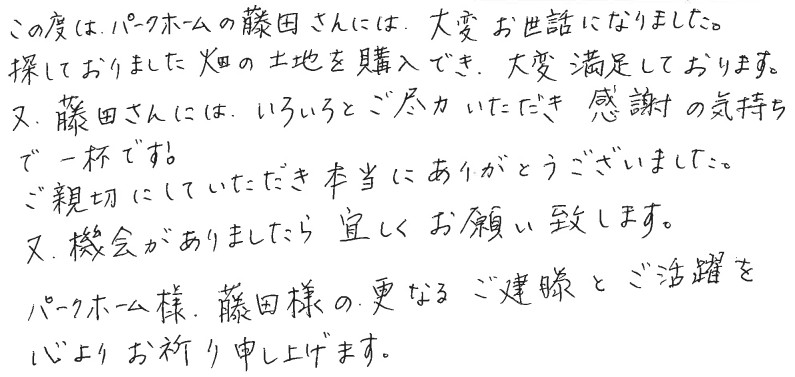 この度は、パークホームの藤田さんには、大変お世話になりました。
探しておりました畑の土地を購入でき、大変満足しております。
又、藤田さんには、いろいろとご尽力いただき感謝の気持ち
で一杯です!
ご親切にしていただき本当にありがとうございました。
又、機会がありましたら宜しくお願い致します。
パークホーム様、藤田様の更なるご健勝とご活躍を
心よりお祈り申し上げます。